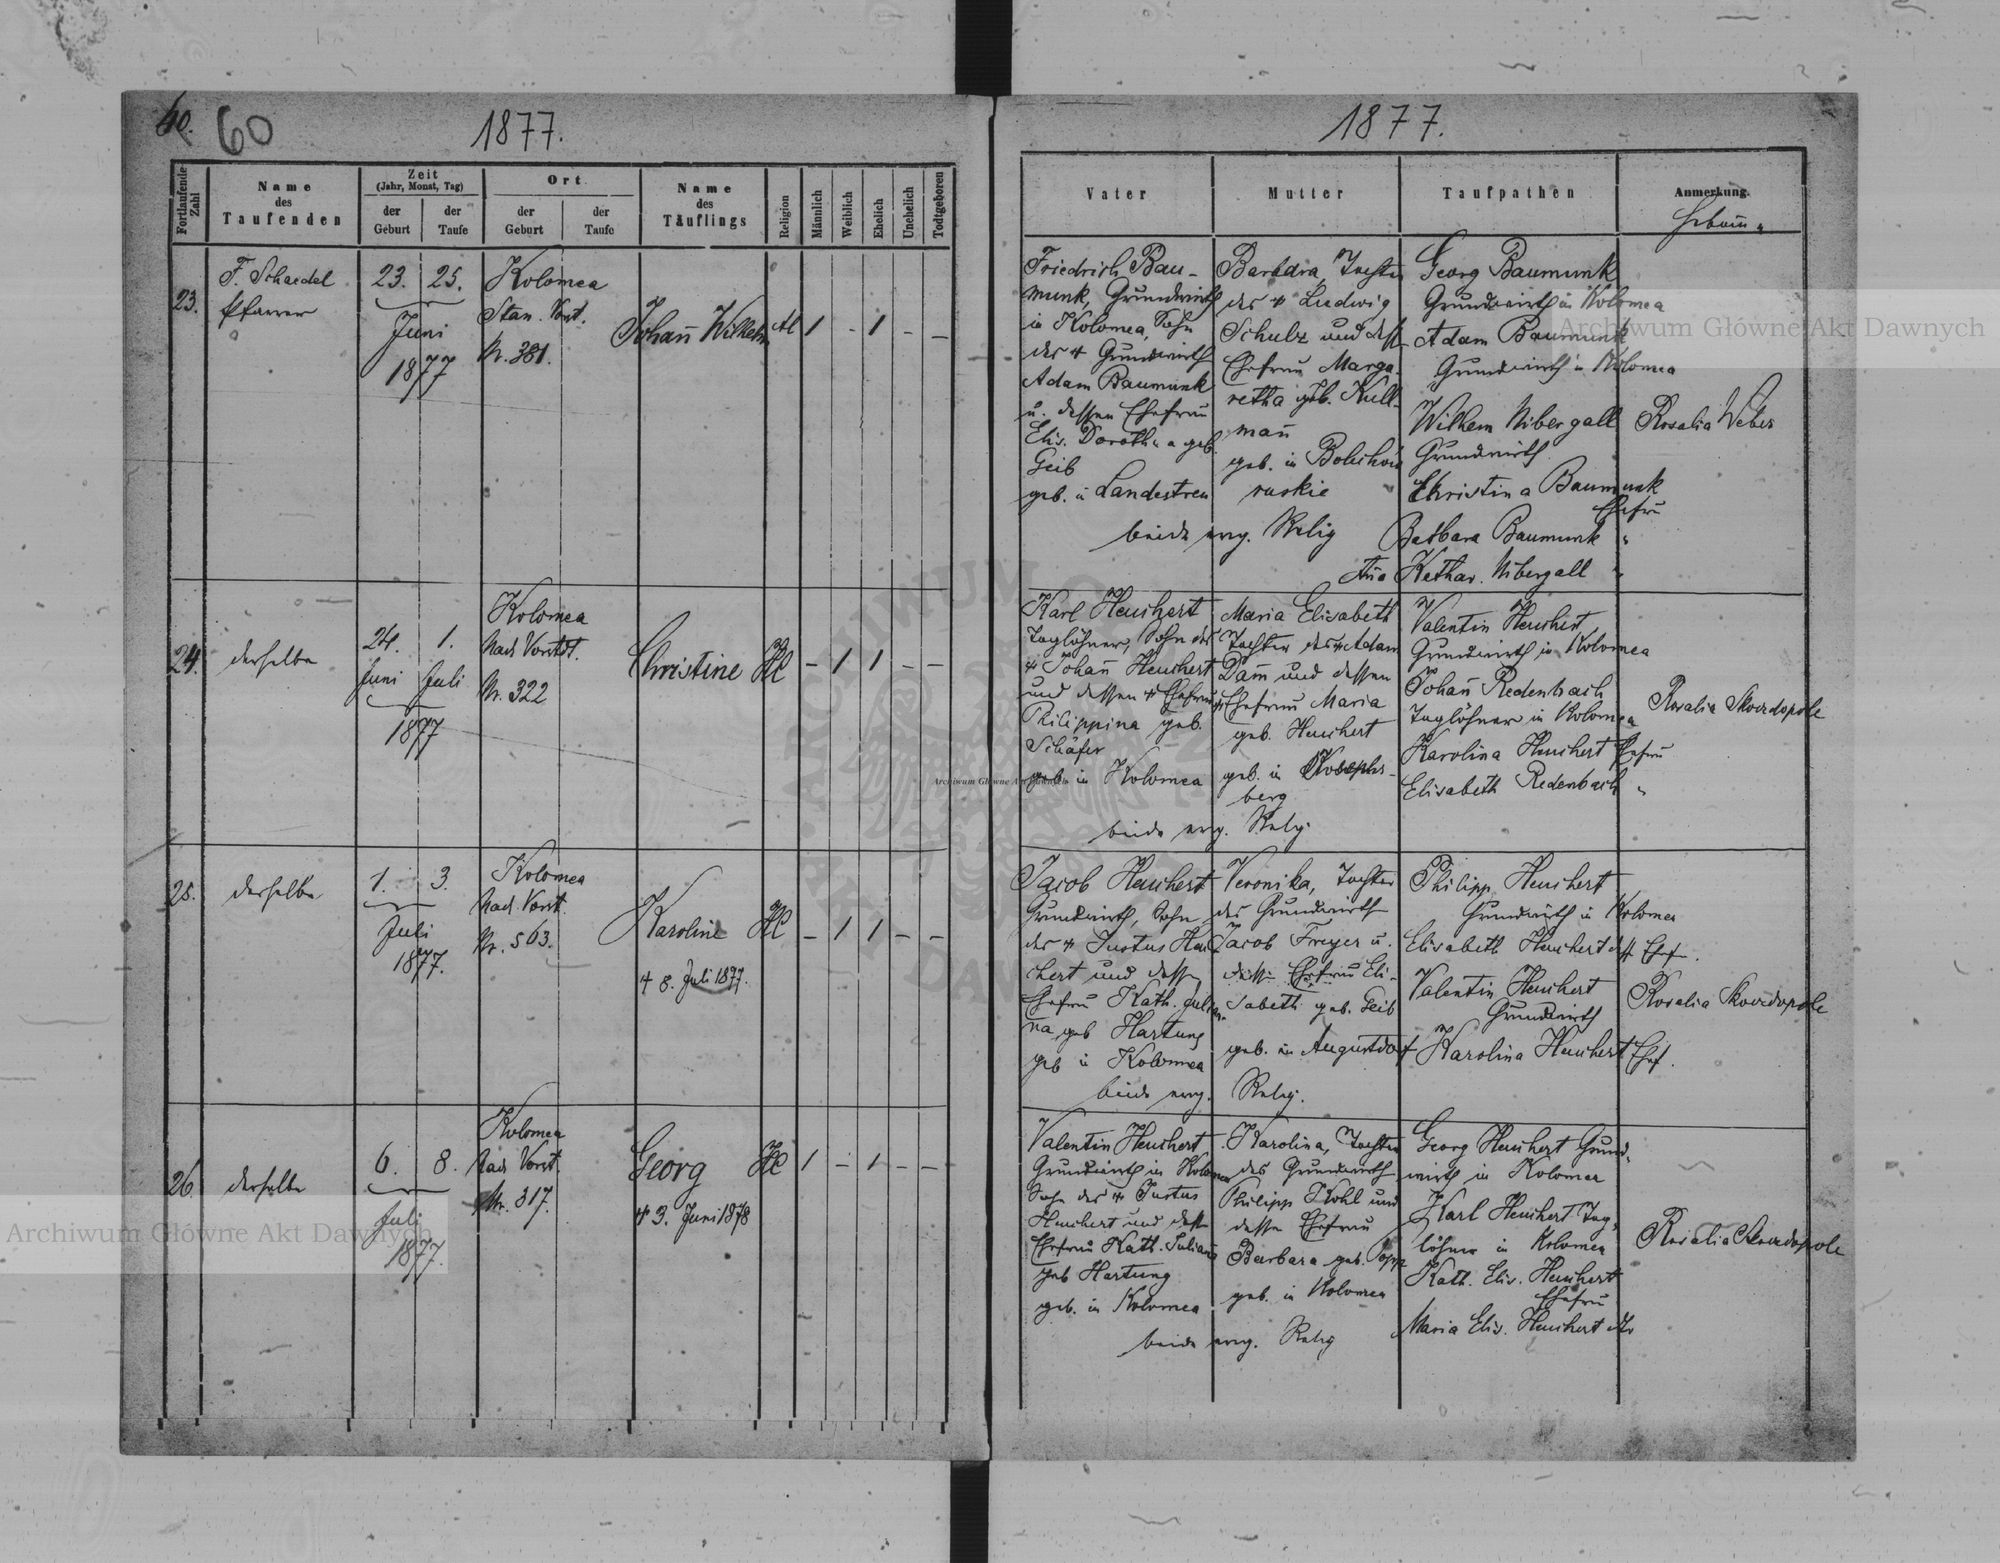 60.
60
1877.
Fortlaufende Zahl
Name
des
Taufenden
Zeit
(Jahr, Monat, Tag)
der
Geburt
der
Taufe
Ort
der
Geburt
der
Taufe
Name
des
Täuflings
Religion
Männlich
Weiblich
Ehelich
Unehelich
Todtgeboren
23.
F. Schaedel
Pfarrer
23. 25.
Juni
1877
Kolomea
Stan. Vorst.
Nr. 381.
Johañ Wilhelm
1 - 1 - -
24.
derselbe
24. 1.
Juni Juli
1877
Kolomea
Nad. Vorstdt.
Nr. 322
Christine
- 1 1 - -
25.
derselbe
1. 3.
Juli
1877.
Kolomea
Nad. Vorst.
Nr. 563.
Karoline
- 1 1 - -
+ 8. Juli 1877.
26.
derselbe
6. 8.
Juli
1877.
Kolomea
Nad. Vorst.
Nr. 317.
Georg
1 - 1 - -
+ 3. Juni 1878
1877.
Vater
Mutter
Taufpathen
Anmerkung.
Friedrich Bau-
munk, Grundwirth
in Kolomea, Sohn
des + Grundwirth
Adam Baumunk
u. dessen Ehefrau
Elis. Dorothea geb.
Geib
geb. in Landestreu
Barbara, Tochter
des + Ludwig
Schulz und dess.
Ehefrau Marga-
retha geb. Kull-
mañ
geb. in Bolechow
ruskie
beide evg. Relig
Georg Baumunk
Grundwirth in Kolomea
Adam Baumunk
Grundwirth in Kolomea
Wilhem Nibergall
Grundwirth
Christina Baumunk
Ehefrau
Barbara Baumunk "
Aña Kathar. Nibergall "
Rosalia Weber
Karl Heuchert
Taglöhner, Sohn des
+ Johañ Heuchert
und dessen + Ehefrau
Philippina geb.
Schäfer
geb. in Kolomea
Maria Elisabeth
Tochter des + Adam
Dam̃ und dessen
Ehefrau Maria
geb. Heuchert
geb. in Josephs-
berg
beide evg. Relig.
Valentin Heuchert
Grundwirth in Kolomea
Johañ Redenbach
Taglöhner in Kolomea
Karolina Heuchert Ehefrau
Elisabeth Redenbach "
Rosalia Skowdopole
Jacob Heuchert
Grundwirth, Sohn
des + Justus Heu-
chert und dessen
Ehefrau Kath. Julian-
na geb Hartung
geb in Kolomea
Veronika, Tochter
des Grundwirth
Jacob Freyer u.
dessen Ehefrau Eli-
sabeth geb. Geib
geb. in Augustdorf
beide evg. Relig.
Philipp Heuchert
Grundwirth in Kolomea
Elisabeth Heuchert dess Ehef.
Valentin Heuchert
Grundwirth
Karolina Heuchert Ehef.
Rosalia Skowdopole
Valentin Heuchert
Grundwirth in Kolomea
Sohn des + Justus
Heuchert und dessen
Ehefrau Kath. Juliana
geb Hartung
geb. in Kolomea
Karolina, Tochter
des Grundwirth
Philipp Kohl und
dessen Ehefrau
Barbara geb. Popp
geb. in Kolomea
beide evg. Relig
Georg Heuchert Grund-
wirth in Kolomea
Karl Heuchert Tag-
löhner in Kolomea
Kath. Elis. Heuchert
Ehefrau
Maria Elis. Heuchert dto
Rosalia Skowdopole
Archiwum Główne Akt Dawnych
Archiwum Główne Akt Dawnych
Archiwum Główne Akt Dawnych